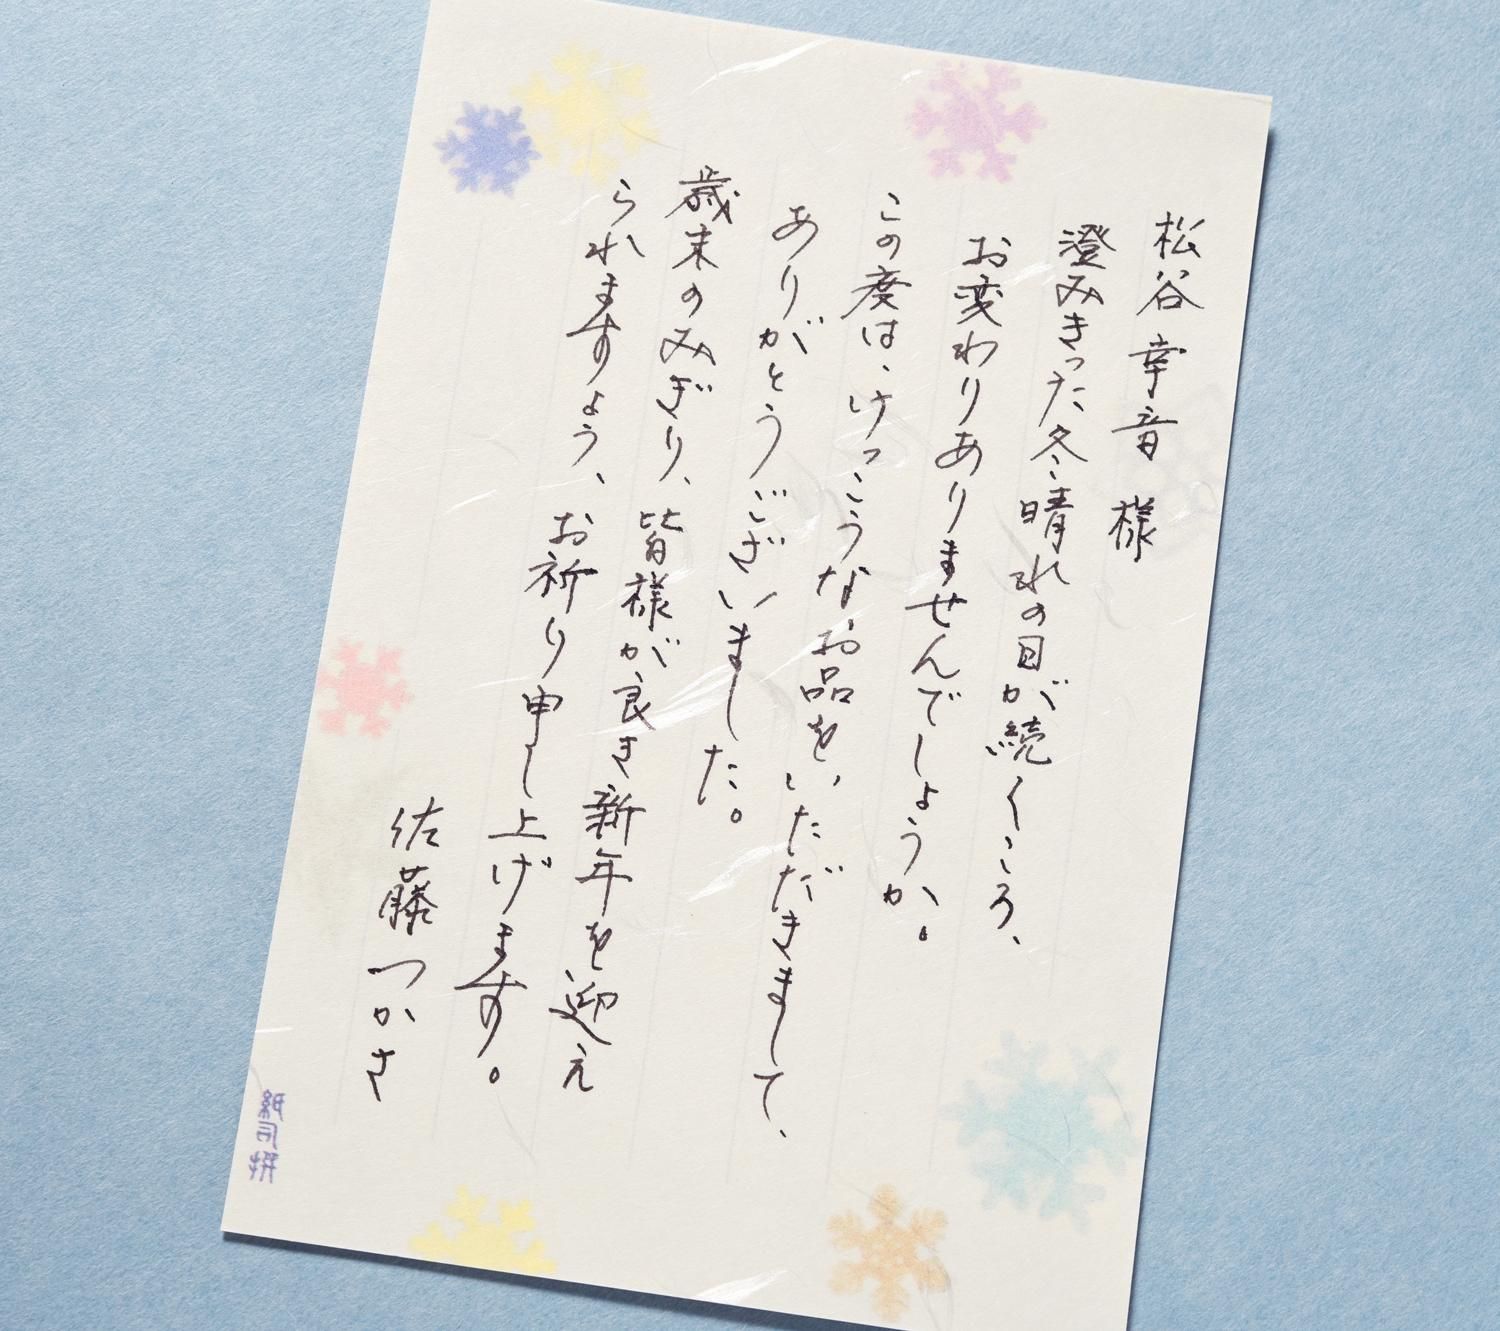 松谷幸音様
澄みきった冬晴れの日が続くころ、
お変わりありませんでしょうか。
この度は、けっこうなお品を、いただきまして、
ありがとうございました。
歳末のみぎり、皆様が良き新年を迎え
られますよう、お祈り申し上げます。
佐藤つかさ
紙司撰